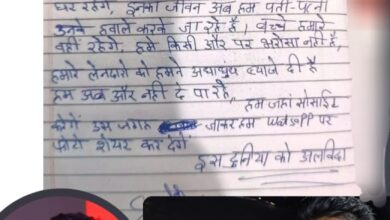 घर रहेंगे, इनका जीवन अब हम पती-पत्नी
उनके हवाले करके जा रहे है। बच्चे हमारे
वहीं रहेंगे, हमे किसी और पर भरोसा नहीं है,
हमारे लेनदारो को हमने अंधाधुंध ब्याजे दी है
हम अब और नहीं दे पा रहे, हम जहां सोसाईट
करेंगे उस जगह जाकर हम Whatsapp पर
फोटो शेयर कर देंगे
इस दुनिया को अलविदा